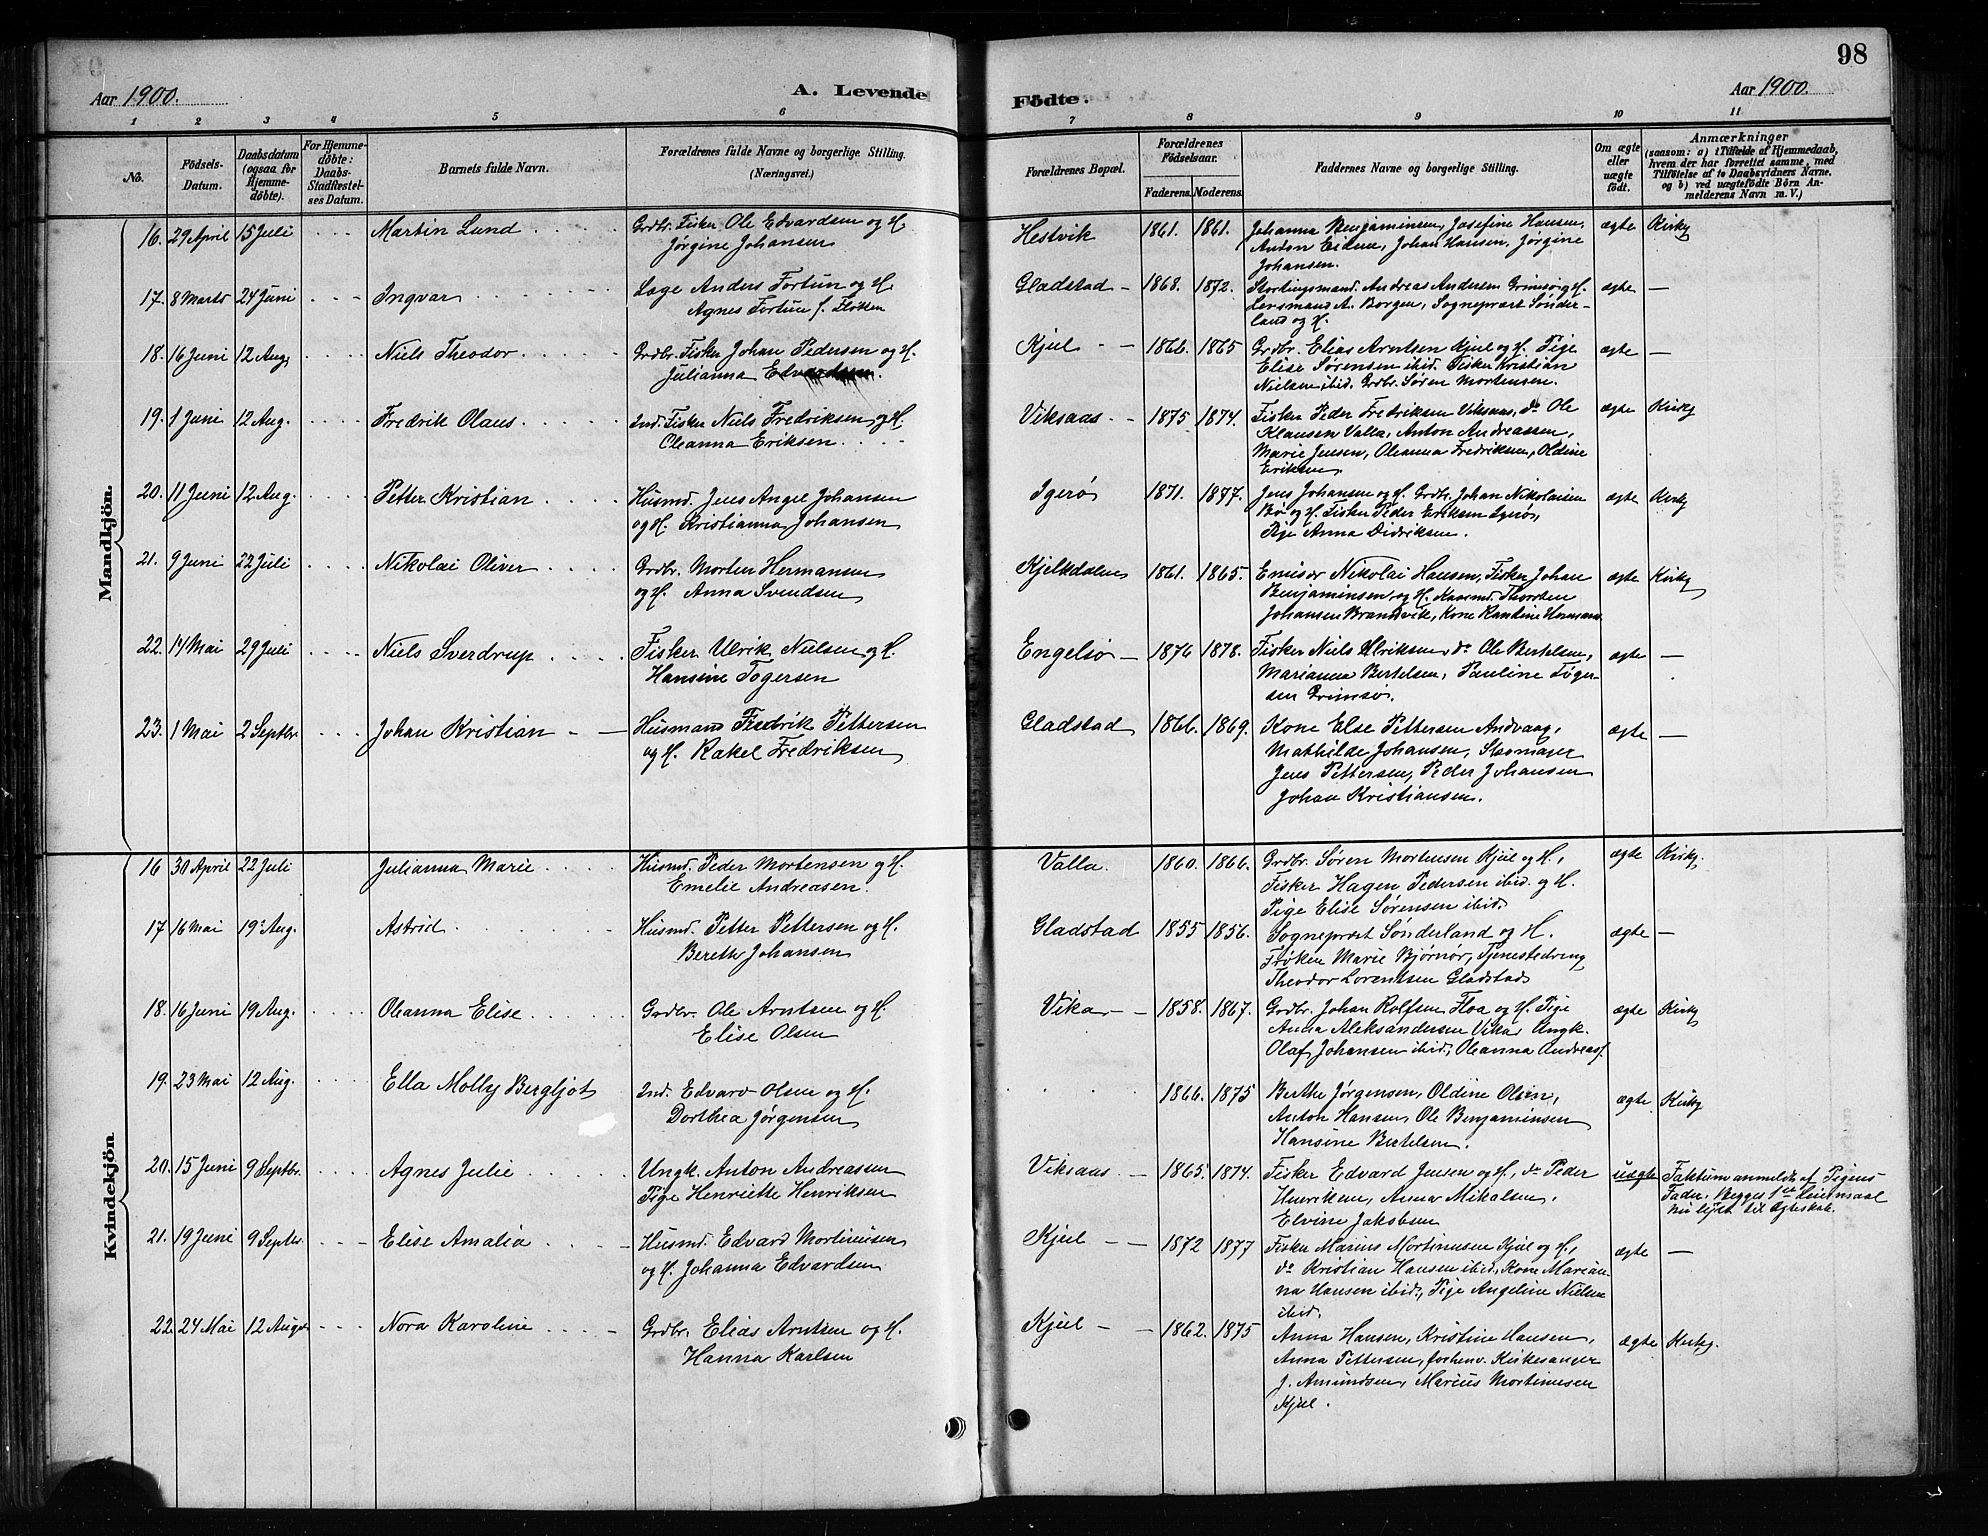 98
Aar 1900.
A. Levende
Födte.
Aar 1900.
1 2 3 4 5 6 7 8 9 10 11
No.
Födsels-
Datum.
Daabsdatum
(ogsaa for
Hjemme-
döbte).
For Hjemme-
döbte:
Daabs-
Stadfæstel-
ses Datum.
Barnets fulde Navn.
Forældrenes fulde Navne og borgerlige Stilling.
(Næringsvei.)
Forældrenes Bopæl.
Forældrenes
Födselsaar.
Faderens. Moderens.
Faddernes Navne og borgerlige Stilling.
Om ægte
eller
uægte
födt.
Anmærkninger
(saasom: a) i Tilfælde af Hjemmedaab,
hvem der har forrettet samme, med
Tilföielse af to Daabsvidners Navne,
og b) ved uægtefödte Börn An-
melderens Navn m. V.)
Mandkjön.
16. 29 April 15 Juli Martin Lund Grdbr. Fisker Ole Edvardsen og H.
Jørgine Johansen
Hestvik 1861. 1861. Johanna Benjaminsen, Josefine Hansen,
Anton Eidem, Johan Hansen, Jørgine
Johansen.
ægte Kirky
17. 8 Marts 24 Juni Ingvar Læge Anders Fortun og H.
Agnes Fortun f. Floken
Gladstad 1868. 1872. Stortingsmand. Andreas Andersen Grimsø og H.
Lensmand A. Borgen, Sogneprest Sønder-
land og H.
ægte —
18. 16 Juni 12 Aug, Niels Theodor Grdbr. Fisker Johan Pedersen og H.
Julianna Edvardsen.
Kjul 1866. 1865 Grdbr. Elias Arntsen Kjul og H. Pige
Elise Sørensen ibid. Fisker Kristian
Nielsen ibid. Grdbr. Søren Mortensen.
ægte —
19. 1 Juni 12 Aug. Fredrik Olaus Ind. Fisker Niels Fredriksen og H.
Oleanna Eriksen
Viksaas 1875 1874. Fisker Peder Fredriksen Viksaas, do Ole
Klausen Valla, Anton Andreassen,
Marie Jensen, Oleanna Fredriksen, Oldine
Eriksen
ægte Kirky
20. 11 Juni 12 Aug. Petter Kristian Husmd. Jens Angel Johansen
og H. Kristianna Johansen
Igerø 1871. 1877. Jens Johansen og H. Grdbr. Johan Nikolaisen
Bø og H. Fisker Peder Eriksen Igerø,
Pige Anna Didriksen.
ægte Kirky
21. 9 Juni 22 Juli Nikolai Oliver Grdbr. Morten Hermansen
og H. Anna Svendsen
Kjelkdalen 1861. 1865. Emisær Nikolai Hansen, Fisker Johan
Benjaminsen, og H. Husmd. Thorsten
Johansen Brandsvik, Kone Rantine Hermans.
ægte Kirky
22. 14 Mai 29 Juli Niels Sverdrup Fisker Ulrik Nielsen og H.
Hansine Togersen
Engelsø 1876 1878. Fisker Niels Ulriksen, do Ole Bertelsen,
Marianna Bertelsen, Pauline Toger-
sen Grimsø.
ægte —
23. 1 Mai 2 Septbr. Johan Kristian Husmand Fredrik Pettersen
og H. Rakel Fredriksen
Gladstad 1866. 1869. Kone Else Pettersen Andvaag,
Mathilde Johansen, Skomager
Jens Pettersen, Peder Johansen
Johan Kristiansen.
ægte —
Kvindekjön.
16 30 April 22 Juli Julianna Marie Husmd. Peder Mortensen og H.
Emelie Andreasen.
Valla. 1860. 1866. Grdbr. Søren Mortensen Kjul og H.,
Fisker Hagen Pedersen ibid. og H.
Pige Elise Sørensen ibid.
ægte Kirky.
17 16 Mai 19 Aug. Astrid Husmd. Petter Pettersen og H.
Berethe Johansen
Gladstad 1855 1856. Sogneprest Sønderland og H.
Frøken Marie Bjørnør, Tjenestedreng
Theodor Lorentsen Gladstad
ægte —
18. 16 Juni 19 Aug. Oleanna Elise Grdbr. Ole Arntsen og H.
Elise Olsen
Vika 1858. 1867. Grdbr. Johan Rolfsen Floa og H. Pige
Anna Aleksandersen Vika, Ungk.
Olaf Johansen ibid., Oleanna Andreas.
ægte Kirky
19. 23 Mai 12 Aug. Ella Molly Bergljot Ind. Edvard Olsen og H.
Dorthea Jørgensen
1866. 1875 Berthe Jørgensen, Oldine Olsen,
Anton Hansen, Ole Benjaminsen
Hansine Bertelsen.
ægte Kirky
20. 15 Juni 9 Septbr. Agnes Julie Ungk. Anton Andreassen
Pige Henriette Henriksen
Viksaas 1865. 1874. Fisker Edvard Jensen og H., do Peder
Henriksen, Anna Mikalsen,
Elvine Jakobsen
uægte Faktum anmeldt af Pigens
Fader. Begges 1ste Leiermaal
Nu lyst til Ægteskab.
21. 19 Juni 9 Septbr. Elise Amalia Husmd. Edvard Mortinusen
og H. Johanna Edvardsen
Kjul 1872 1877 Fisker Marius Mortinusen Kjul og H.,
do Kristian Hansen ibid., Kone Marian-
na Hansen ibid., Pige Angeline Nielsen
ibid.
ægte —
22. 24 Mai 12 Aug. Nora Karoline Grdbr. Elias Arntsen og H.
Hanna Karlsen
Kjul 1862. 1875 Anna Hansen, Kristine Hansen,
Anna Pettersen, forhenv. Kirkesanger
J. Amundsen, Marius Mortinusen
Kjul.
ægte Kirky.